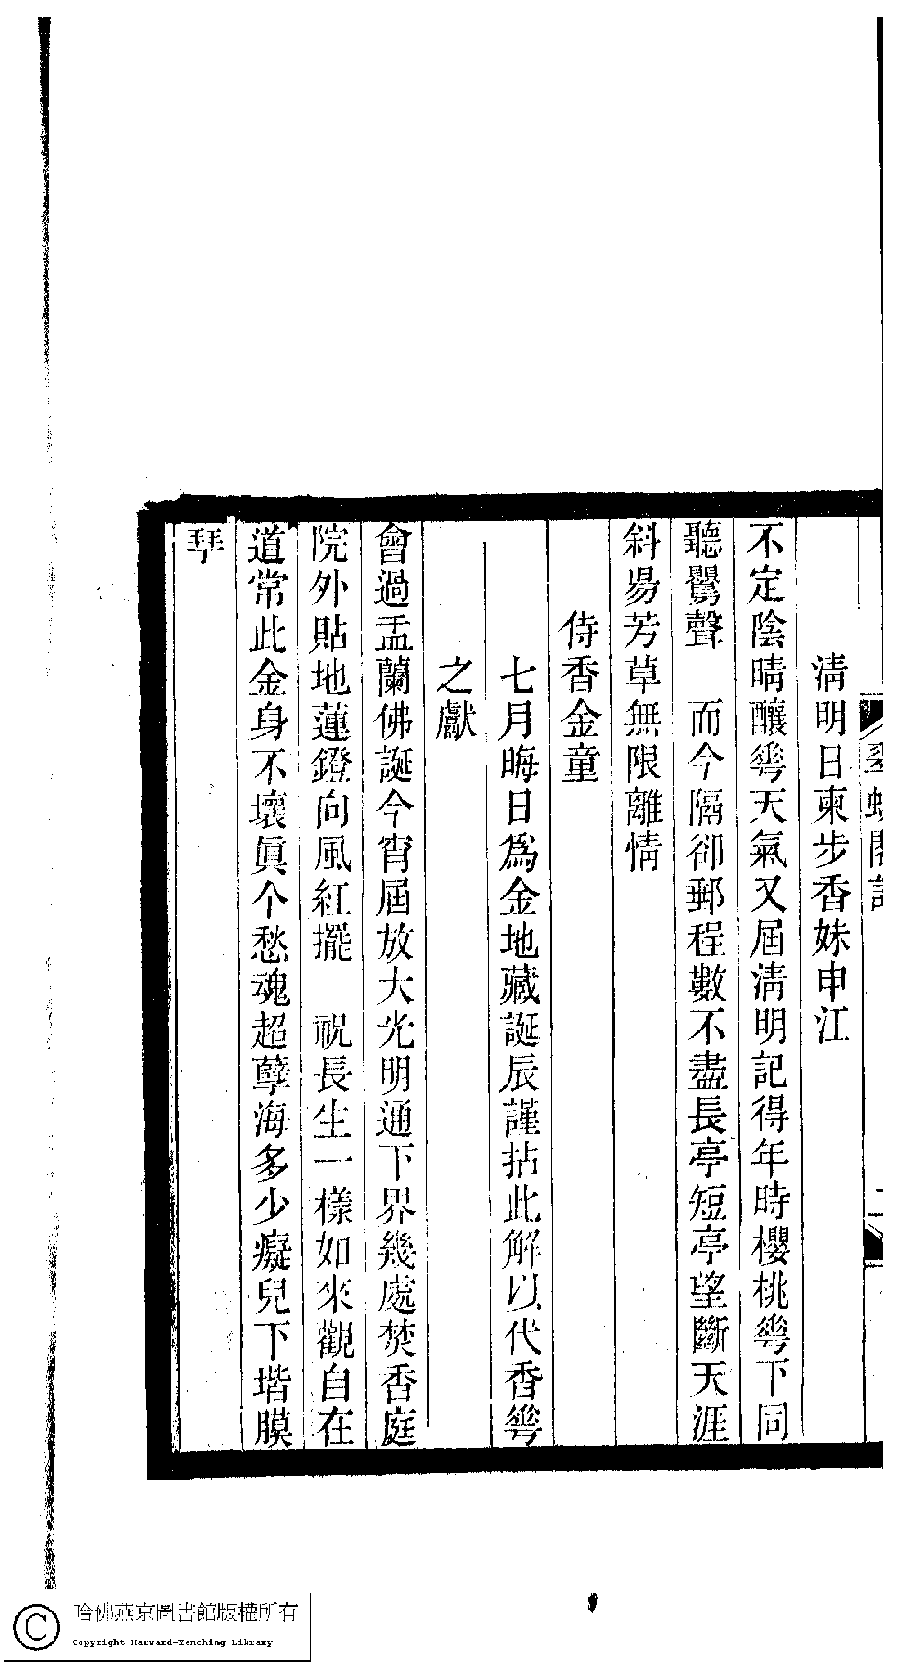 清明日柬步香妹申江
不定陰晴釀蕐天氣又屆淸明記得年時櫻桃蕐下同
聽鸎聲　而今隔卻郵程數不盡長亭短亭望斷天涯
斜昜芳草無限離情
侍香金童
七月晦日爲金地藏誕辰謹拈此解以代香蕐
之獻
會過盂蘭佛誕今宵屆放大光明通下界幾處焚香庭
院外貼地蓮鐙向風紅擺　祝長生一樣如來觀自在
道常此金身不壞眞个愁魂超孽海多少癡兒下堦膜
哈佛燕京圖書館版權所有
Copyright Harvard-Yenching Library